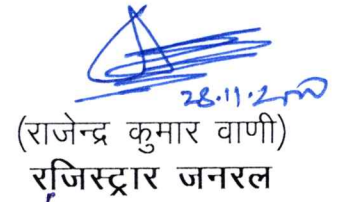 28.11.2000
(राजेन्द्र कुमार वाणी)
रजिस्ट्रार जनरल